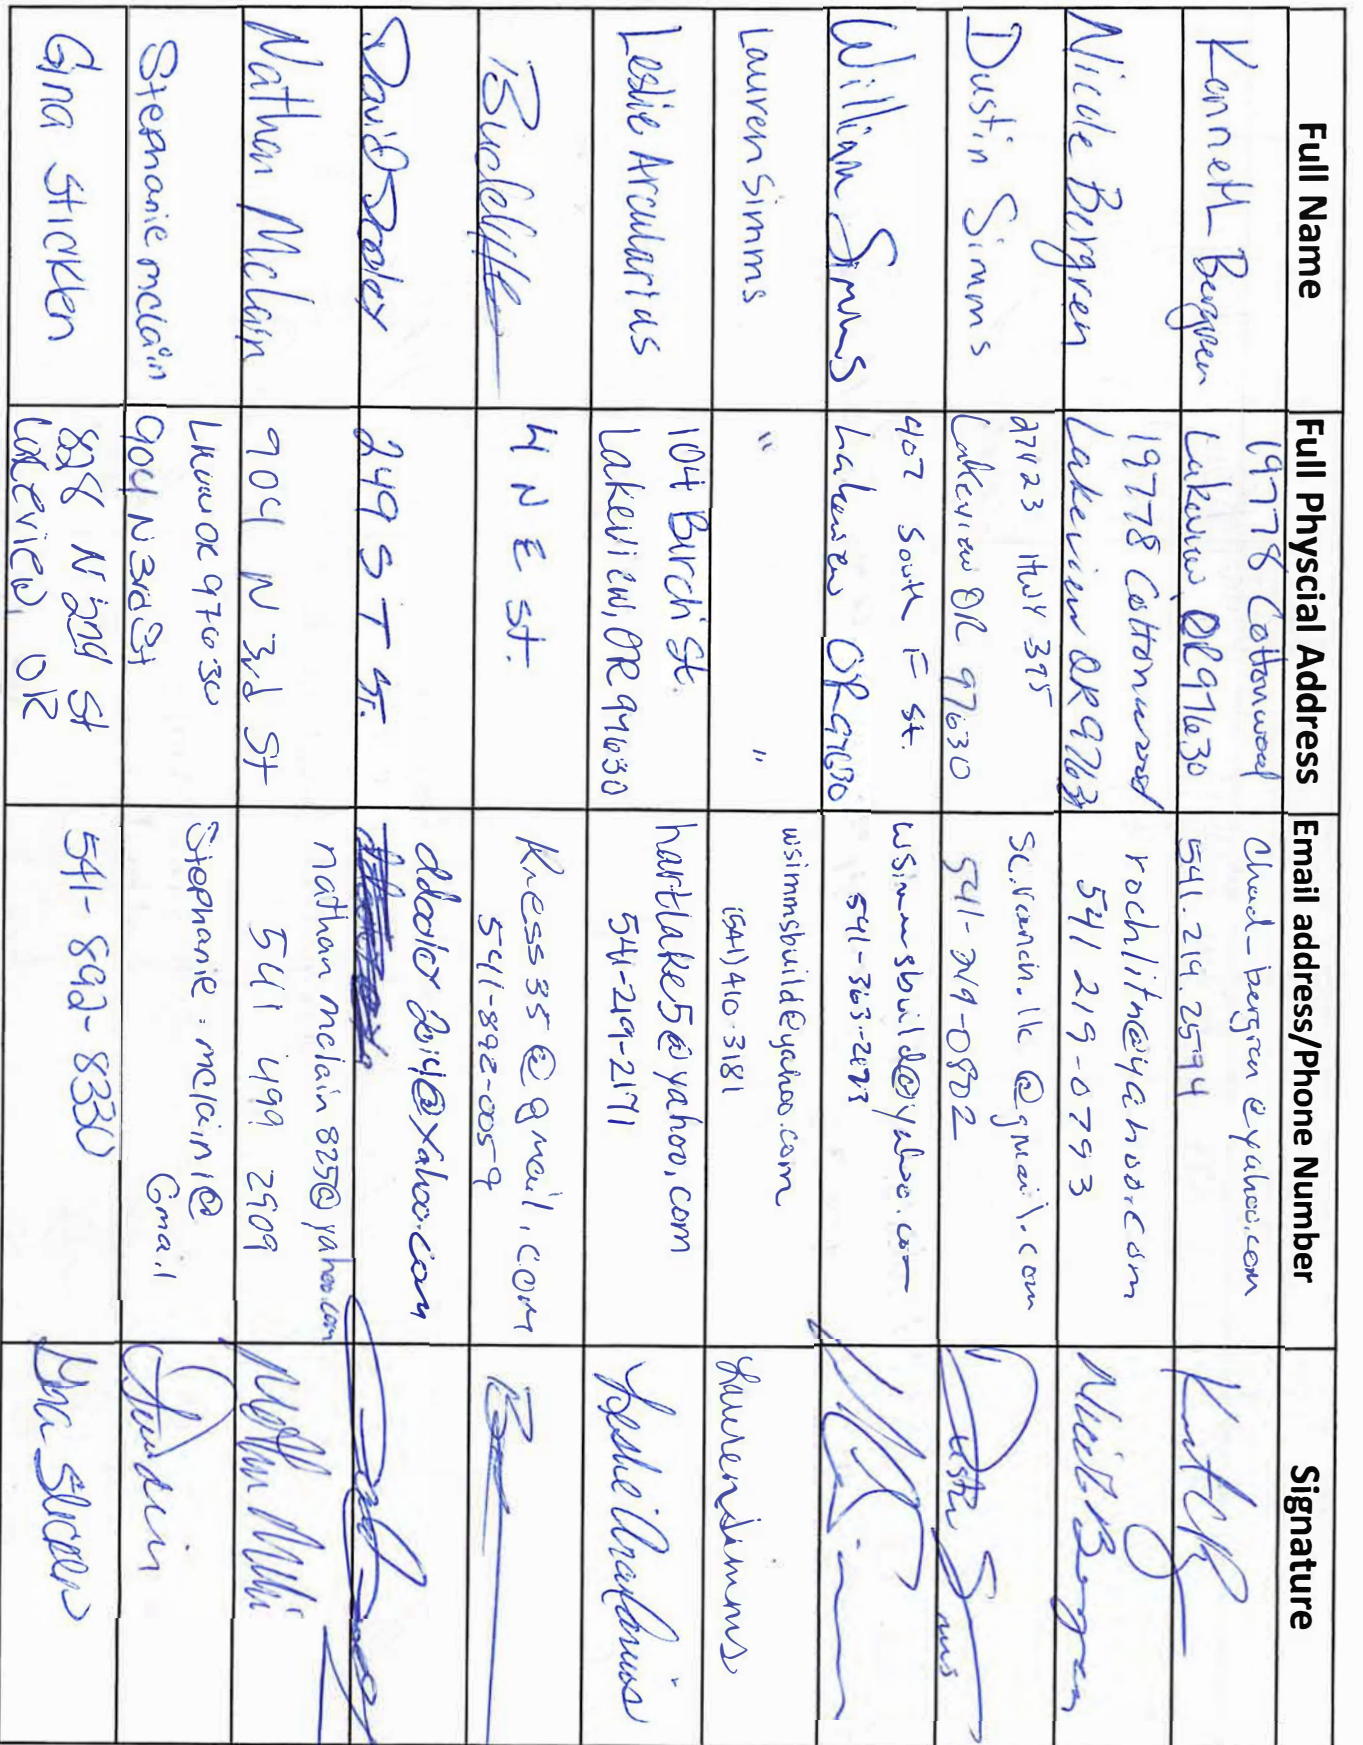 Full Name
Full Physcial Address
Email address/Phone Number
Signature
Kenneth Bergren
19778 Cottonwood
Lakeview OR 97630
Chad_bergren@yahoo.com
541.219.2594
Nicole Bergren
19778 Cottonwood
Lakeview OR 9763
rochlitn@yahoo.com
541 219-0793
Nicole Bergren
Dustin Simms
27423 HWY 395
Lakeview OR 97630
sc.ranch.llc@gmail.com
541-219-0802
Dustin Simms
William Simms
407 South F St.
Lakeview OR 97630
wsimmsbuild@yahoo.com
541-363-2673
Lauren Simms
" "
wsimmsbuild@yahoo.com
(541) 410-3181
Lauren Simms
Leslie Arcularius
104 Burch St.
Lakeview, OR 97630
hartlake5@yahoo.com
541-219-2171
Leslie Arcularius
4 N E St.
Kness35@gmail.com
541-892-0059
David Dooley
249 S T ST.
@yahoo.com
Nathan Mclain
904 N 3rd St
nathanmclain825@yahoo.com
541 499 2909
Stephanie mclain
Lkvw OR 97630
904 N 3rd St
Stephanie.mclain1@
Gmail
Gina Stickler
828 N 2nd St
Lakeview, OR
541-892-8330